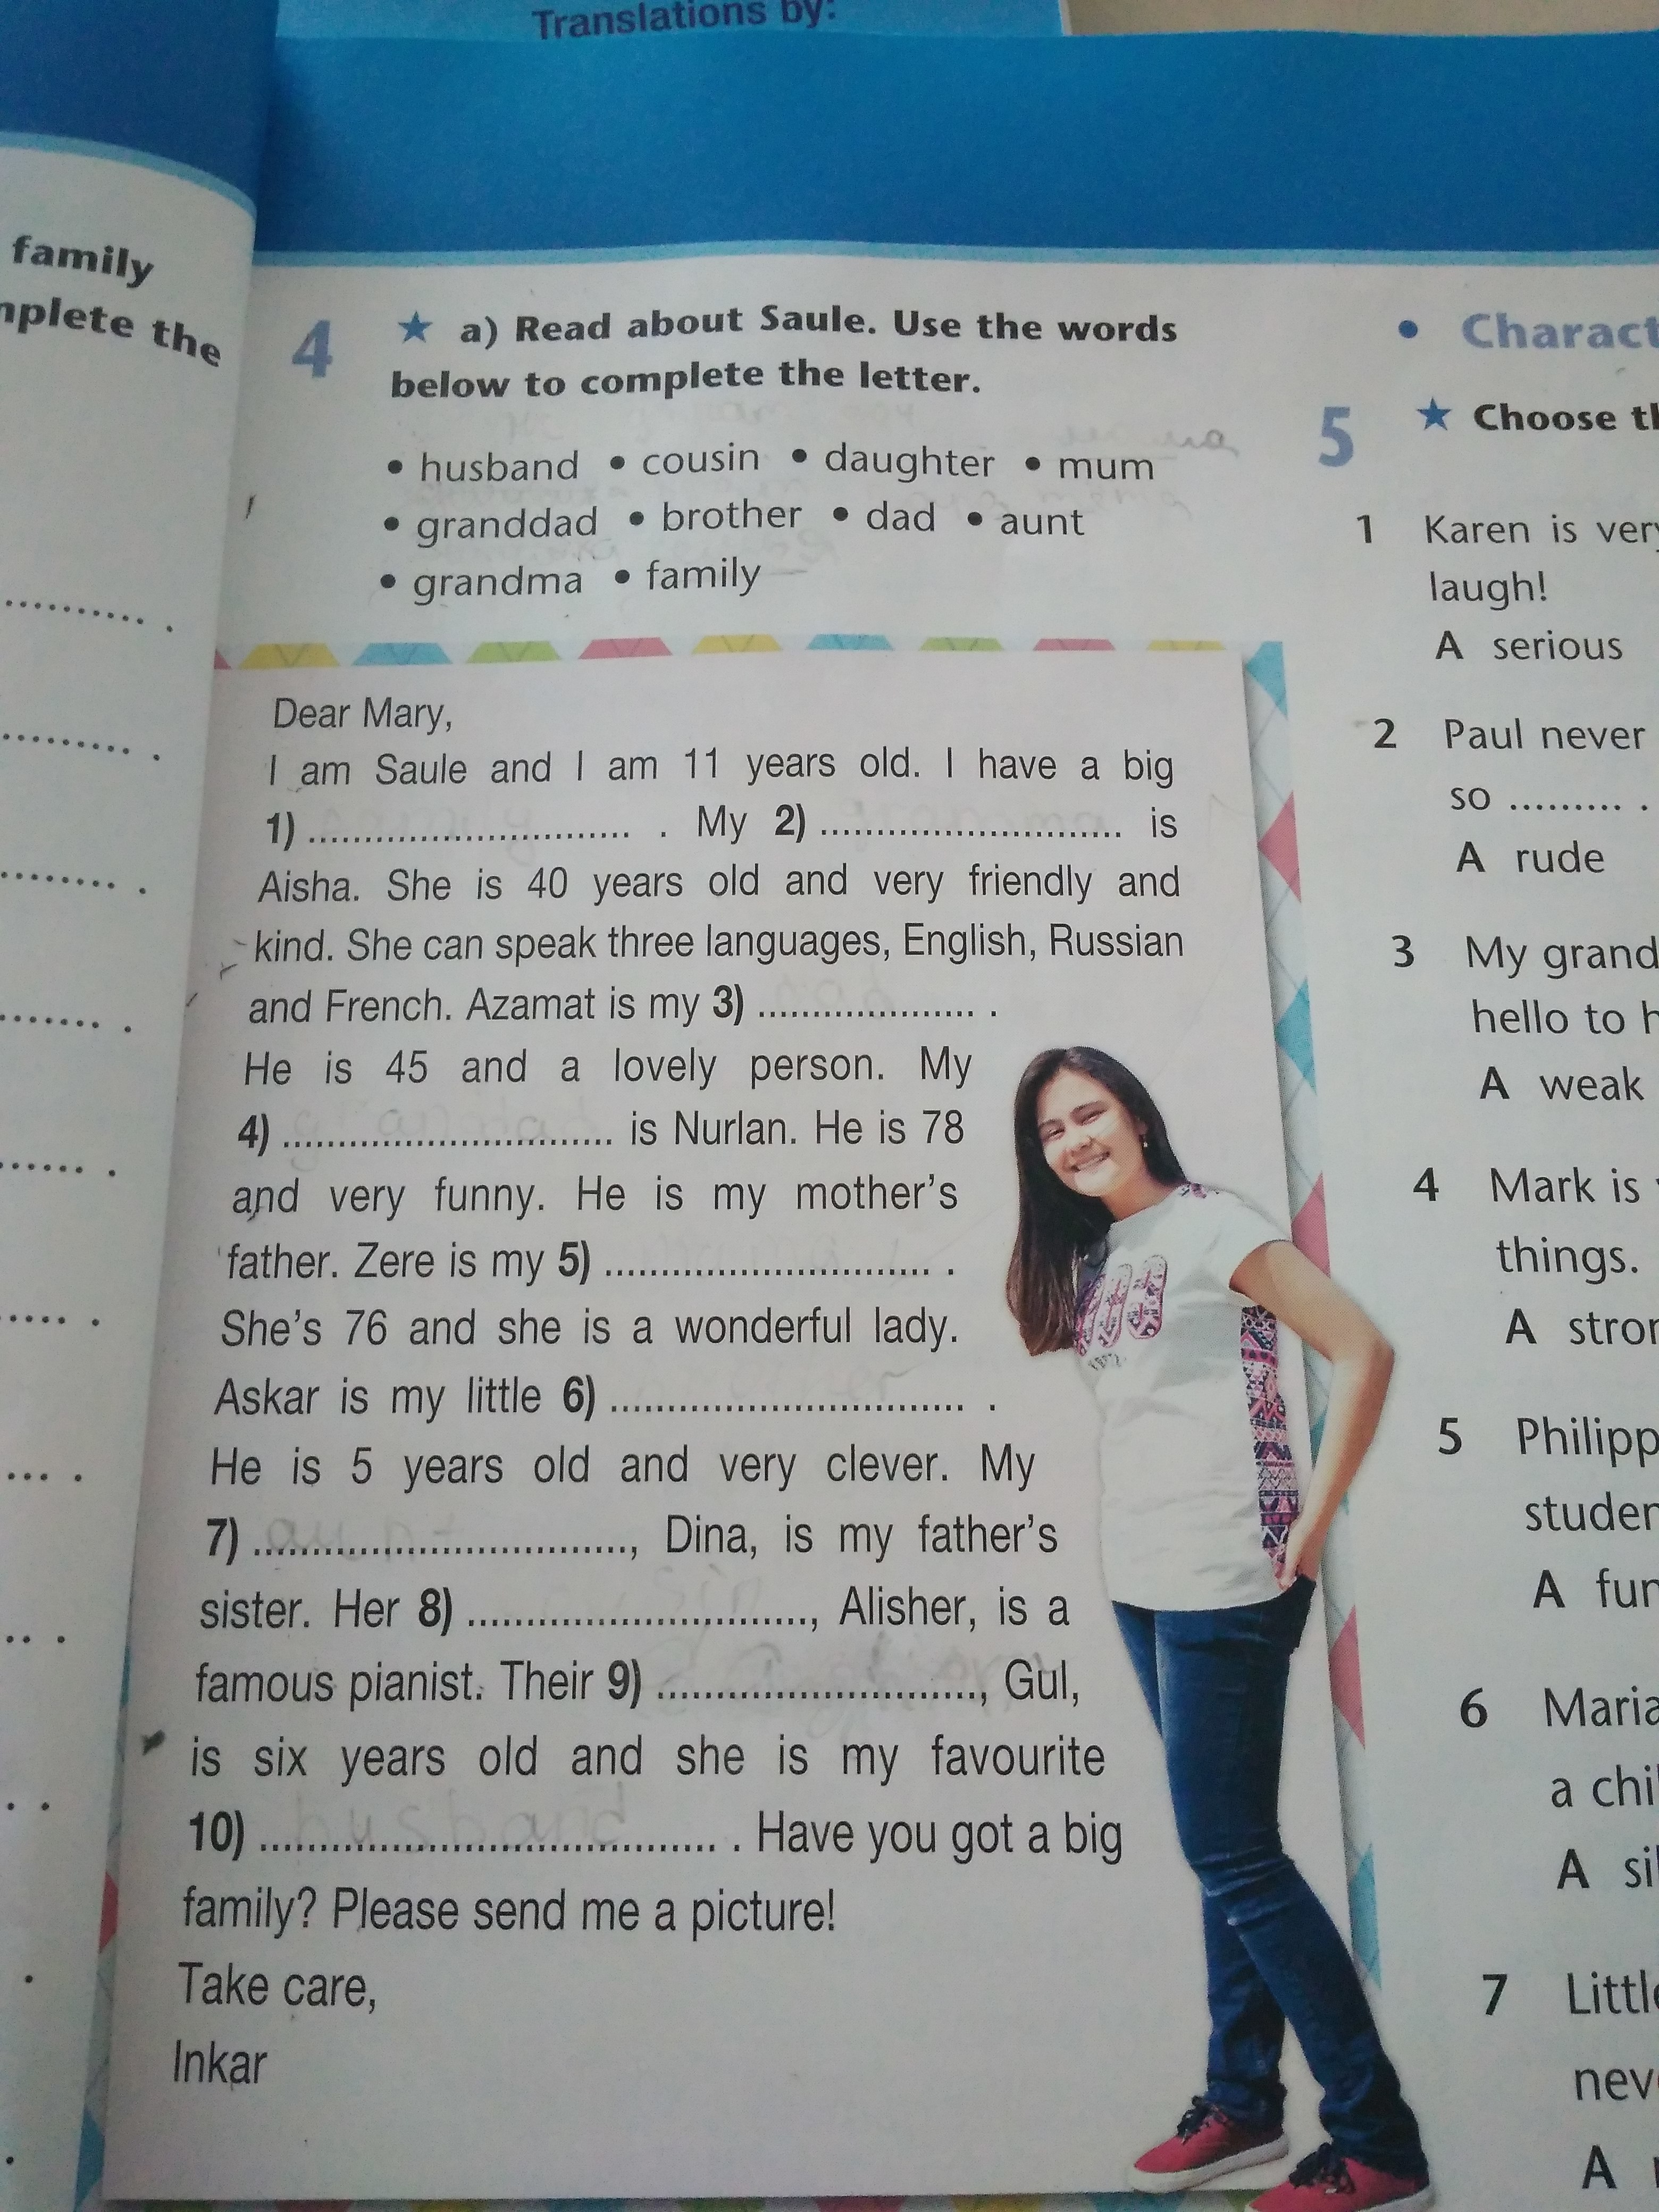 Translations by:
family
the
4 ★ a) Read about Saule. Use the words
below to complete the letter.
• husband • cousin • daughter • mum
• granddad • brother • dad • aunt
• grandma • family
Dear Mary,
I am Saule and I am 11 years old. I have a big
1) ............................. . My 2) ........................... is
Aisha. She is 40 years old and very friendly and
kind. She can speak three languages, English, Russian
and French. Azamat is my 3) .................... .
He is 45 and a lovely person. My
4) .............................. is Nurlan. He is 78
and very funny. He is my mother's
father. Zere is my 5) ............................. .
She's 76 and she is a wonderful lady.
Askar is my little 6) ................................ .
He is 5 years old and very clever. My
7) .................................., Dina, is my father's
sister. Her 8) .............................., Alisher, is a
famous pianist. Their 9) ............................, Gul,
is six years old and she is my favourite
10) ......................................... . Have you got a big
family? Please send me a picture!
Take care,
Inkar
•
5 ★ Choose
1 Karen is
laugh!
A serious
2 Paul never
so .......... .
A rude
3 My
hello to
A weak
4 Mark is
things.
A
5
A
6
a
A
7
A